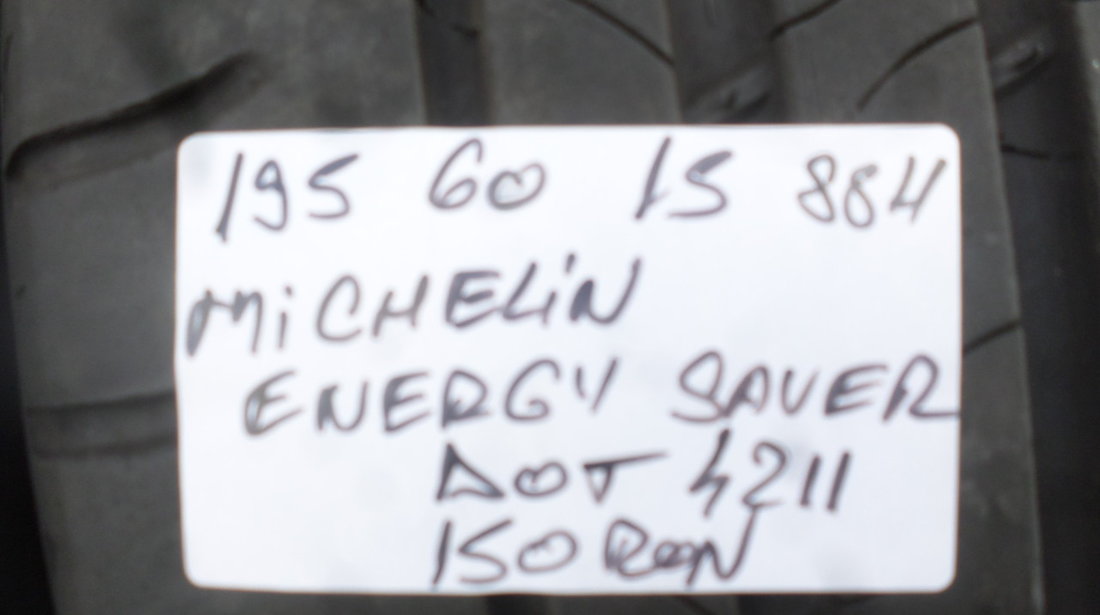 195 60 15 88H
MiCHELiN
ENERGY SAVER
DOT 4211
150 RON